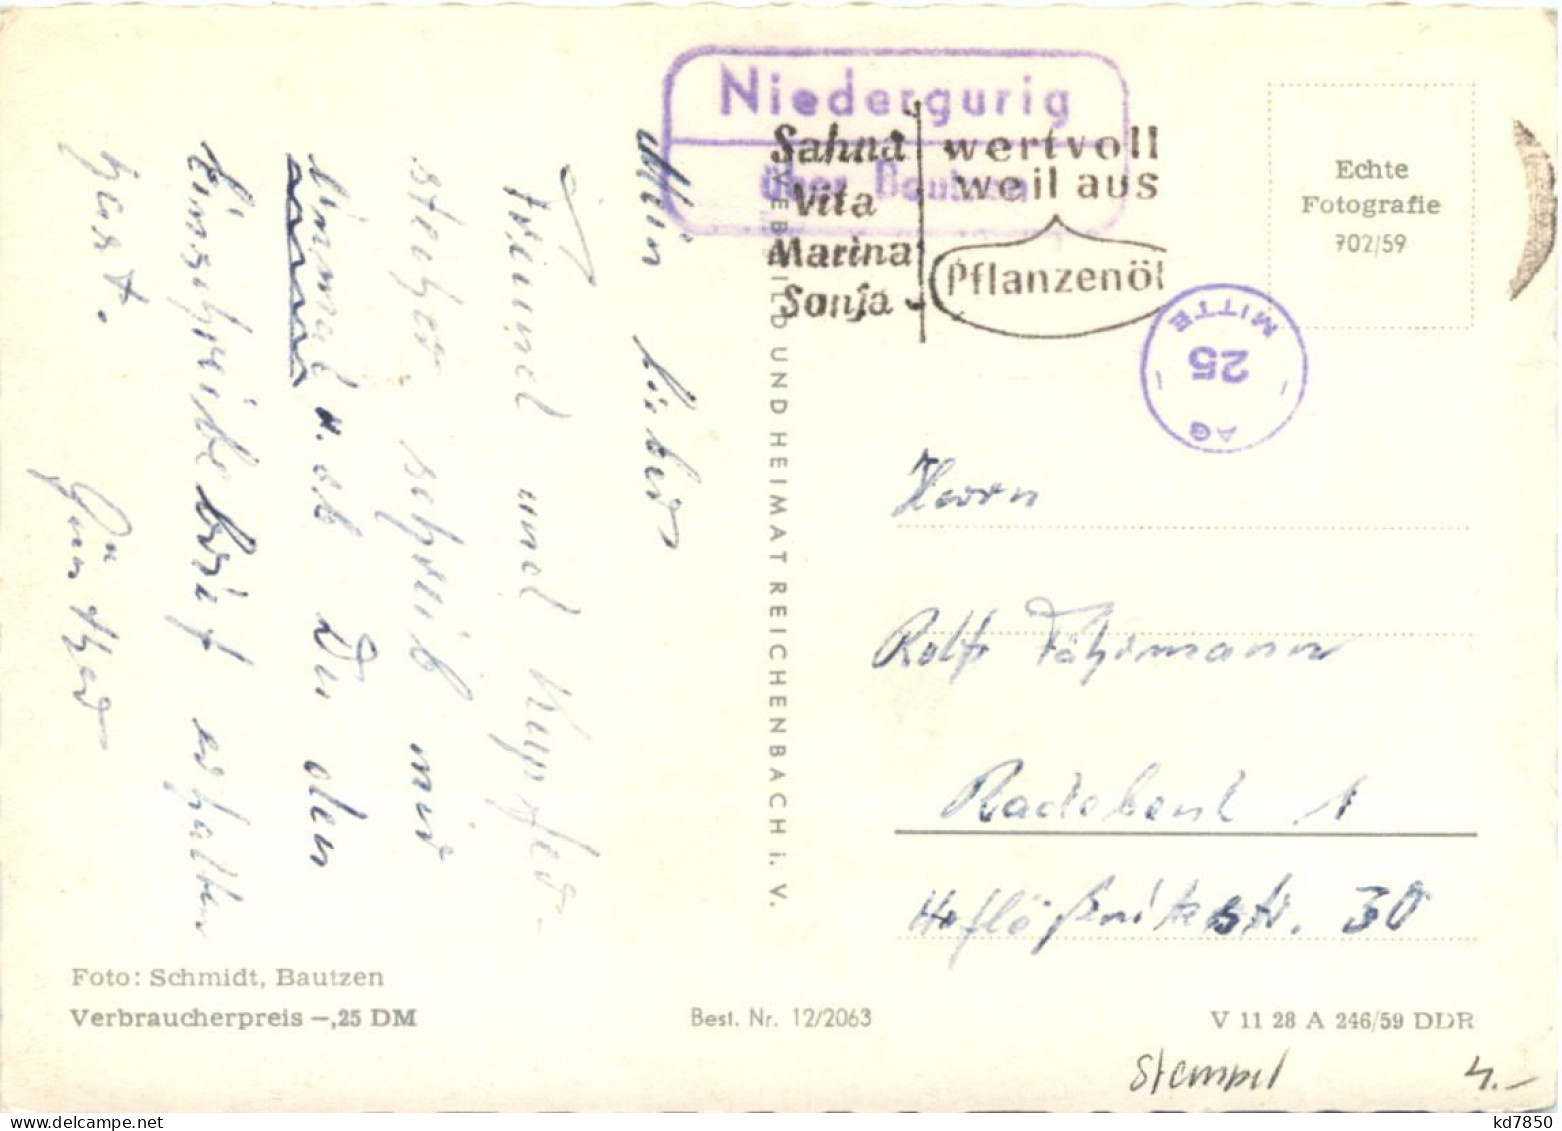 Niedergurig
über Bautzen
Sahna
Vita
Marina
Sonja
wertvoll
weil aus
Pflanzenöl
Echte
Fotografie
702/59
MITTE
25
AG
Mein lieber
Freund und Kupfer-
stecher schreib mir
einmal u. ob Du den
Einschreibebrief erhalten
hast.
Günther
BILD UND HEIMAT REICHENBACH i. V.
Herrn
Rolf Föhrmann
Radebeul 1
Hoflößnitzstr. 30
Foto: Schmidt, Bautzen
Verbraucherpreis –,25 DM
Best. Nr. 12/2063
V 11 28 A 246/59 DDR
Stempel 4.–
kd7850